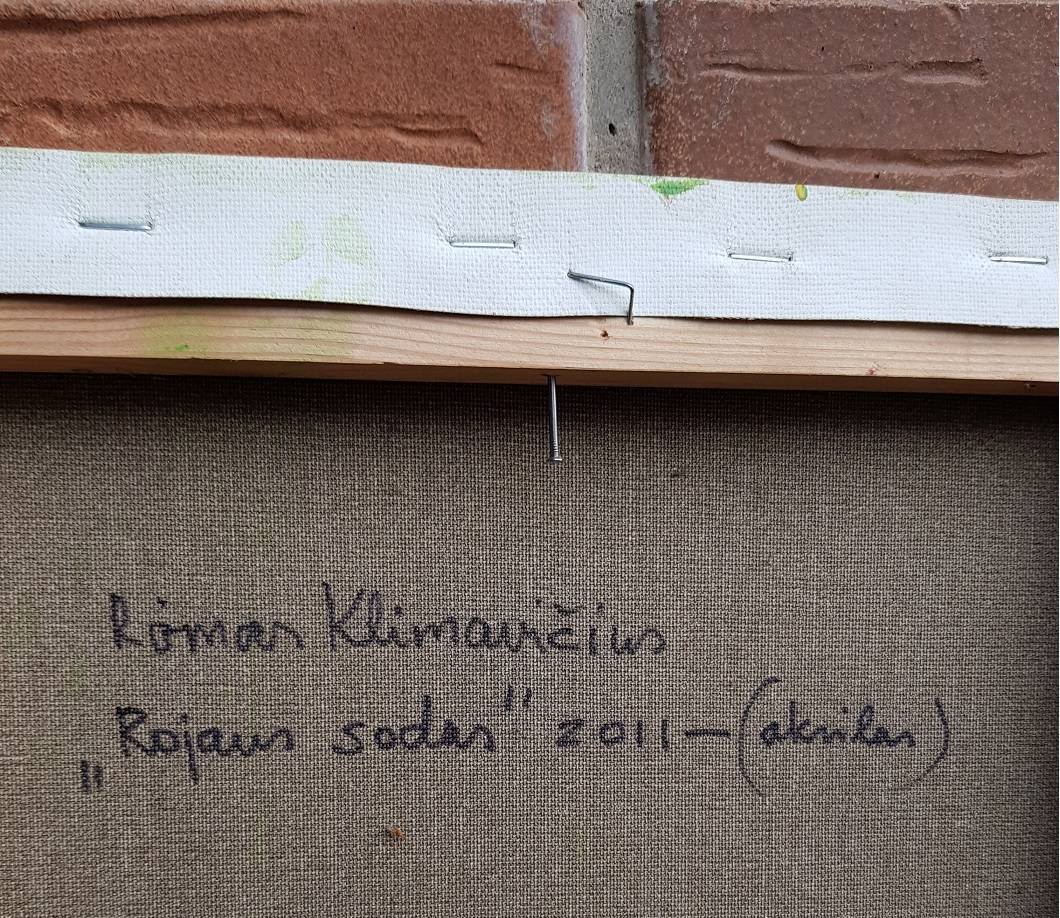 Romas Klimavičius
„Rojaus sodas" 2011 – (akrilas)